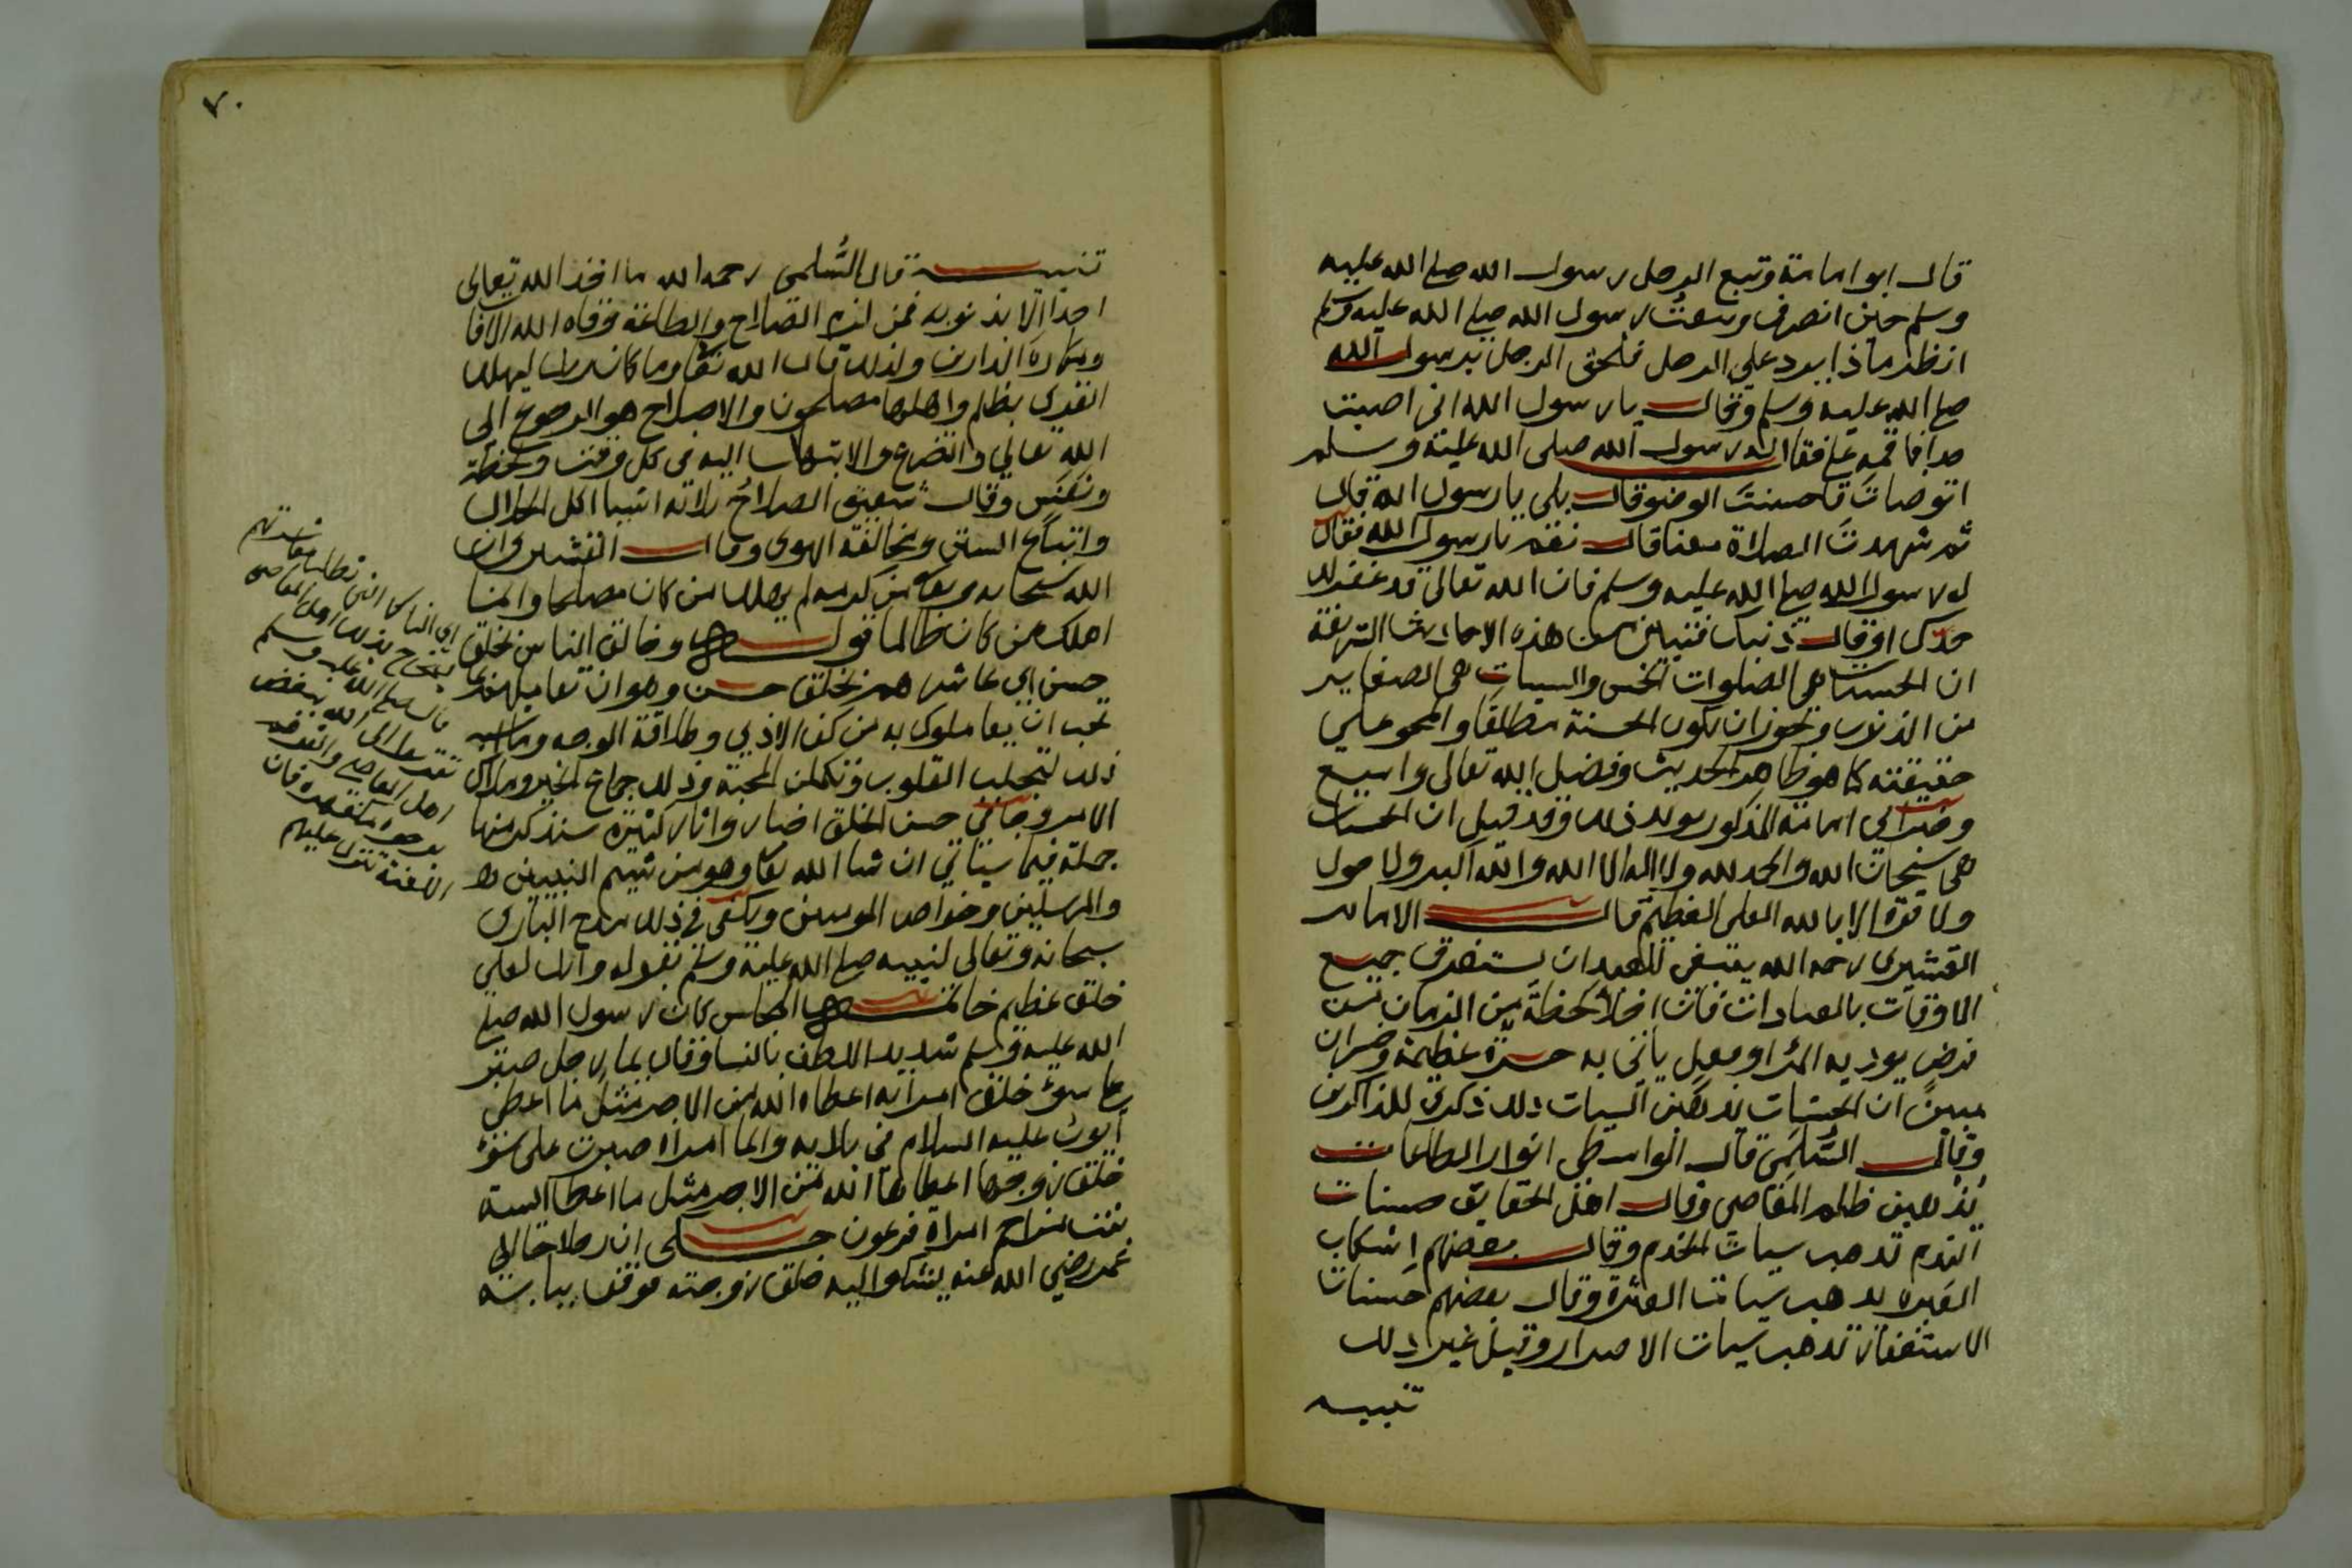 قال ابو امامة وتبع الرجل رسول الله صلى الله عليه
وسلم حين انصرف وتبعت رسول الله صلى الله عليه وسلم
انظر ماذا يرد على الرجل فلحق الرجل برسول الله
صلى الله عليه وسلم وقال يا رسول الله انى اصبت
حدا فاقمه على فقال له رسول الله صلى الله عليه وسلم
اتوضات فاحسنت الوضو قال بلى يا رسول الله قال
ثم شهدت الصلاة معنا قال نعم يا رسول الله فقال
له رسول الله صلى الله عليه وسلم فان الله تعالى قد غفر لك
حدك او قال ذنبك فتبين من هذه الاحاديث الشريفة
ان الحسنات هى الصلوات الخمس والسيات هى الصغاير
من الذنوب ويجوز ان يكون الحسنة مطلقا والمحو على
حقيقته كما هو ظاهر الحديث وفضل الله تعالى واسع
وخبر ابى امامة المذكور يويد ذلك وقد قيل ان الحسنات
هى سبحان الله والحمد لله ولا اله الا الله والله اكبر ولا حول
ولا قوة الا بالله العلى العظيم قال الامام
القشيرى رحمه الله ينبغى للعبد ان يستغرق جميع
الاوقات بالعبادات فان اخلا لحظة من الزمان من
فرض يوديه المرء او نفل ياتى به حسرة عظيمة وخسران
مبين ان الحسنات يذهبن السيات ذلك ذكرى للذاكرين
وقال السلمى قال الواسطى انوار الطاعات
يذهبن ظلم المعاصى وقال اهل الحقايق حسنات
الندم تذهب سيات الجرم وقال بعضهم اسكاب
العبرة يذهب سيات العثرة وقال بعضهم حسنات
الاستغفار تذهب سيات الاصرار وقيل غير ذلك
تنبيه
٧٠
تنبيه قال السلمى رحمه الله ما اخذ الله تعالى
احدا الا بذنوبه فمن لزم الصلاح والطاعة وقاه الله الافات
ومكاره الدارين ولذلك قال الله تعالى وما كان ربك ليهلك
القرى بظلم واهلها مصلحون والاصلاح هو الرجوع الى
الله تعالى والتضرع والابتهال اليه فى كل وقت ولحظة
ونفس وقال شقيق الصلاح ثلاثة اشيا اكل الحلال
واتباع السنن ومخالفة الهوى وقال القشيرى ان
الله سبحانه وتعالى من كرمه لم يهلك من كان مصلحا وانما
اهلك من كان ظالما قوله وخالق الناس بخلق
حسن اى عاشرهم بخلق حسن وهو ان تعاملهم بما
تحب ان يعاملوك به من كف الاذى وطلاقة الوجه
ذلك لتجلب القلوب وتكمل المحبة وذلك جماع الخير وملاك
الامر وجا فى حسن الخلق اخبار واثار كثيرة سنذكر منها
جملة فيما سياتى ان شا الله تعالى وهو من شيم النبيين
والمرسلين وخواص المومنين ويكفى فى ذلك مدح البارى
سبحانه وتعالى لنبيه صلى الله عليه وسلم بقوله وانك لعلى
خلق عظيم خاتمة المجالس كان رسول الله صلى
الله عليه وسلم شديد اللطف بالنسا وقال ايما رجل صبر
على سوء خلق امراته اعطاه الله من الاجر مثل ما اعطى
ايوب عليه السلام فى بلايه وايما امراة صبرت على سوء
خلق زوجها اعطاها الله من الاجر مثل ما اعطا اسية
بنت مزاحم امراة فرعون حكى ان رجلا جا الى
عمر رضى الله عنه يشكوا اليه خلق زوجته فوقف ببابه
اى الناس
قال صلى الله عليه وسلم
تقربوا الى الله ببغض
اهل المعاصى والقوهم
بوجوه مكفهرة فان
اللعنة تنزل عليهم